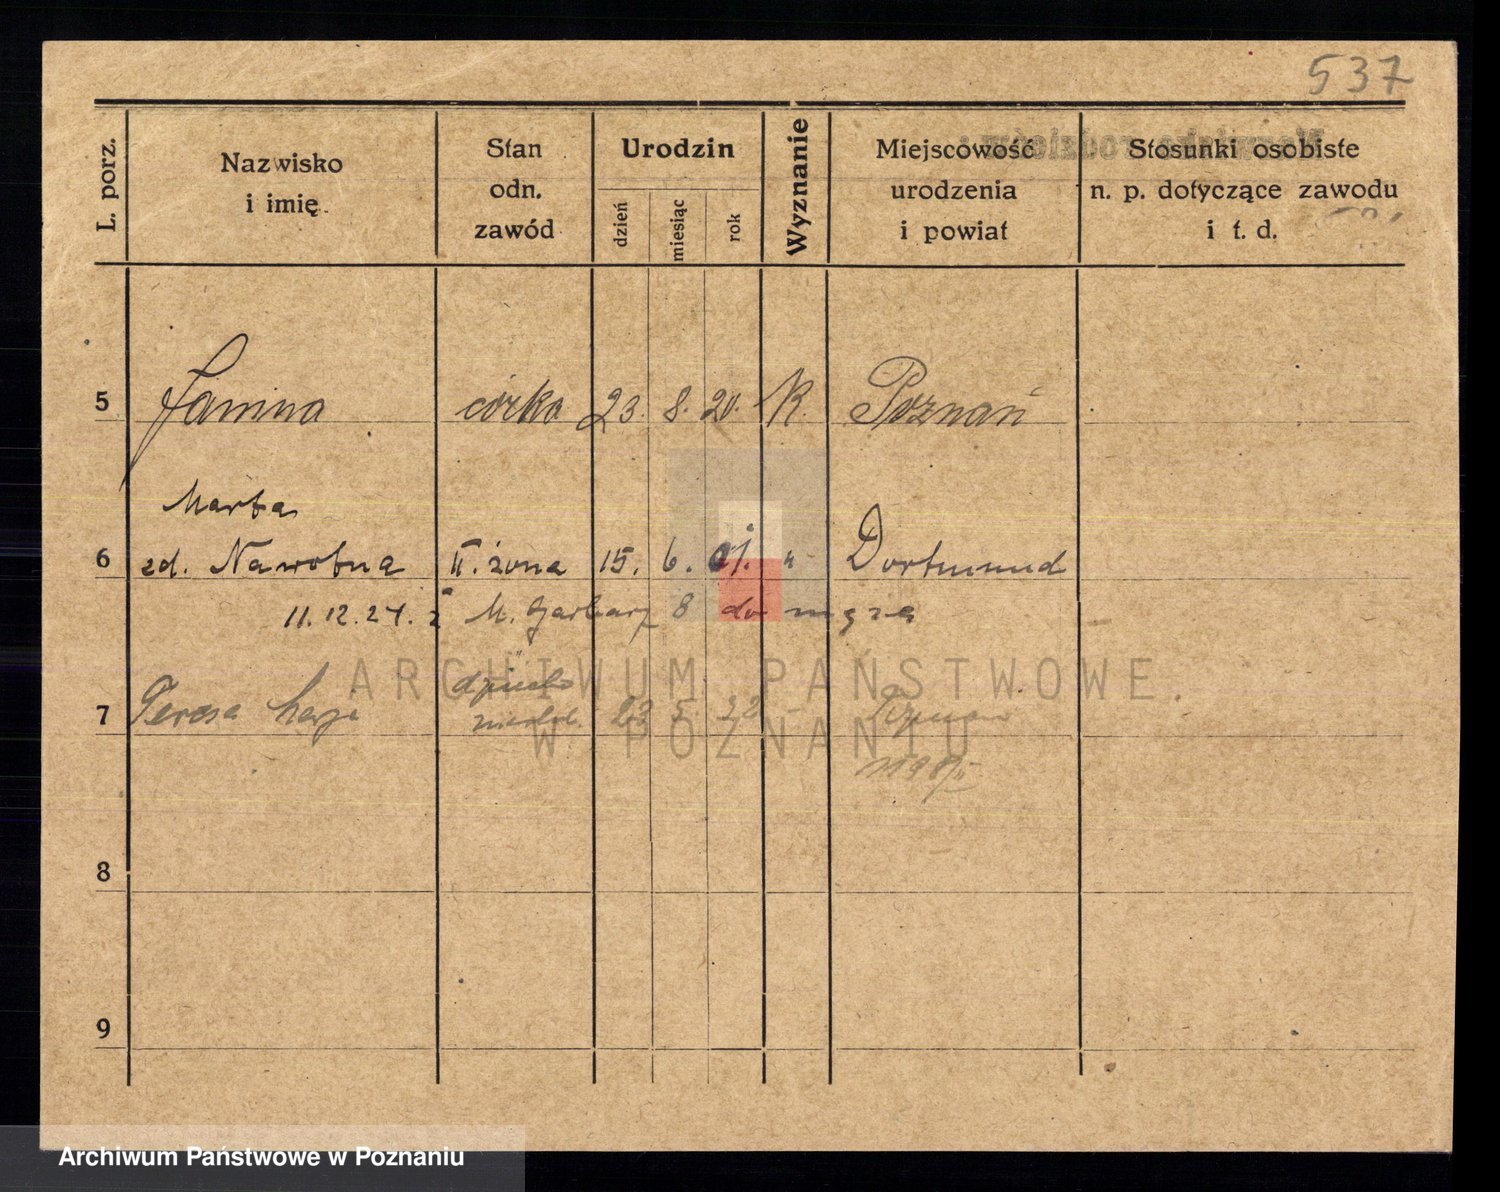 537
L. porz.
Nazwisko
i imię
Stan
odn.
zawód
Urodzin
dzień
miesiąc
rok
Wyznanie
Miejscowość
urodzenia
i powiat
Stosunki osobiste
n. p. dotyczące zawodu
i t. d.
5 Janina córka 23. 8. 20. K. Poznań
Marta
6 zd. Nawrotna II. żona 15. 6. 01. " Dortmund
11.12.24. z M. Garbary 8 do męża
dziecko
7 Teresa 23 5 Poznań
ARCHIWUM PAŃSTWOWE
W POZNANIU
8
9
Archiwum Państwowe w Poznaniu